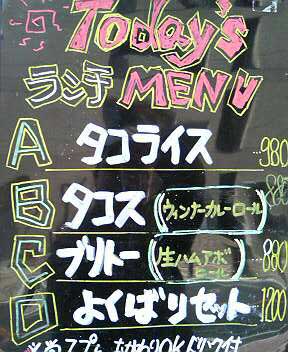 Today's
ランチ MENU
A タコライス 980
B タコス (ウィンナーカレーロール) 880
C ブリトー (生ハムアボロール) 880
D よくばりセット 1200